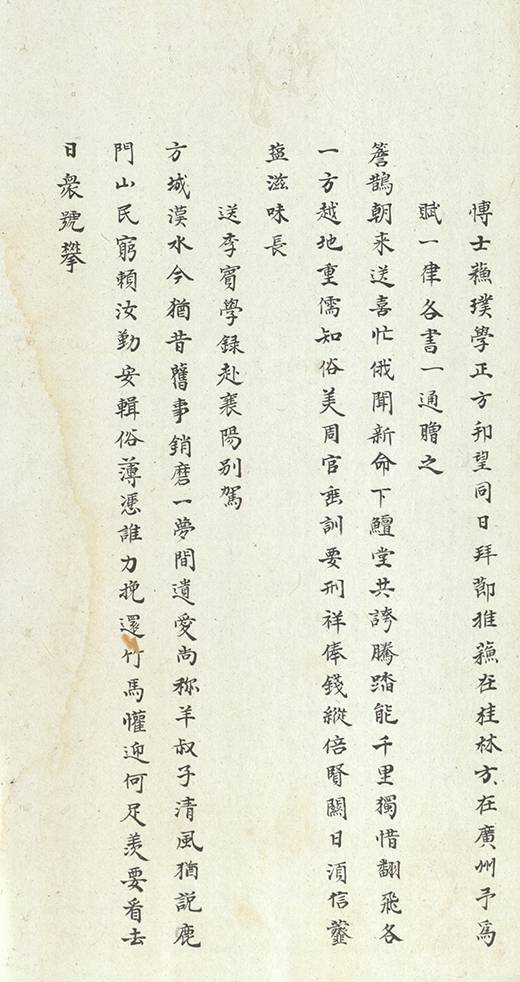 博士蘓璞學正方卯望同日拜節推蘓在桂林方在廣州予爲
賦一律各書一通贈之
簷鵲朝来送喜忙俄聞新命下鱣堂共誇騰踏能千里獨惜翻飛各
一方越地重儒知俗美周官垂訓要刑祥俸錢縱倍賢關日須信虀
盐滋味長
送李賔學録赴襄陽别駕
方城漠水今猶昔舊事銷磨一夢間遺愛尚称羊叔子清風猶説鹿
門山民窮頼汝勤安輯俗薄憑誰力挽還竹馬懽迎何足羨要看去
日衆號攀